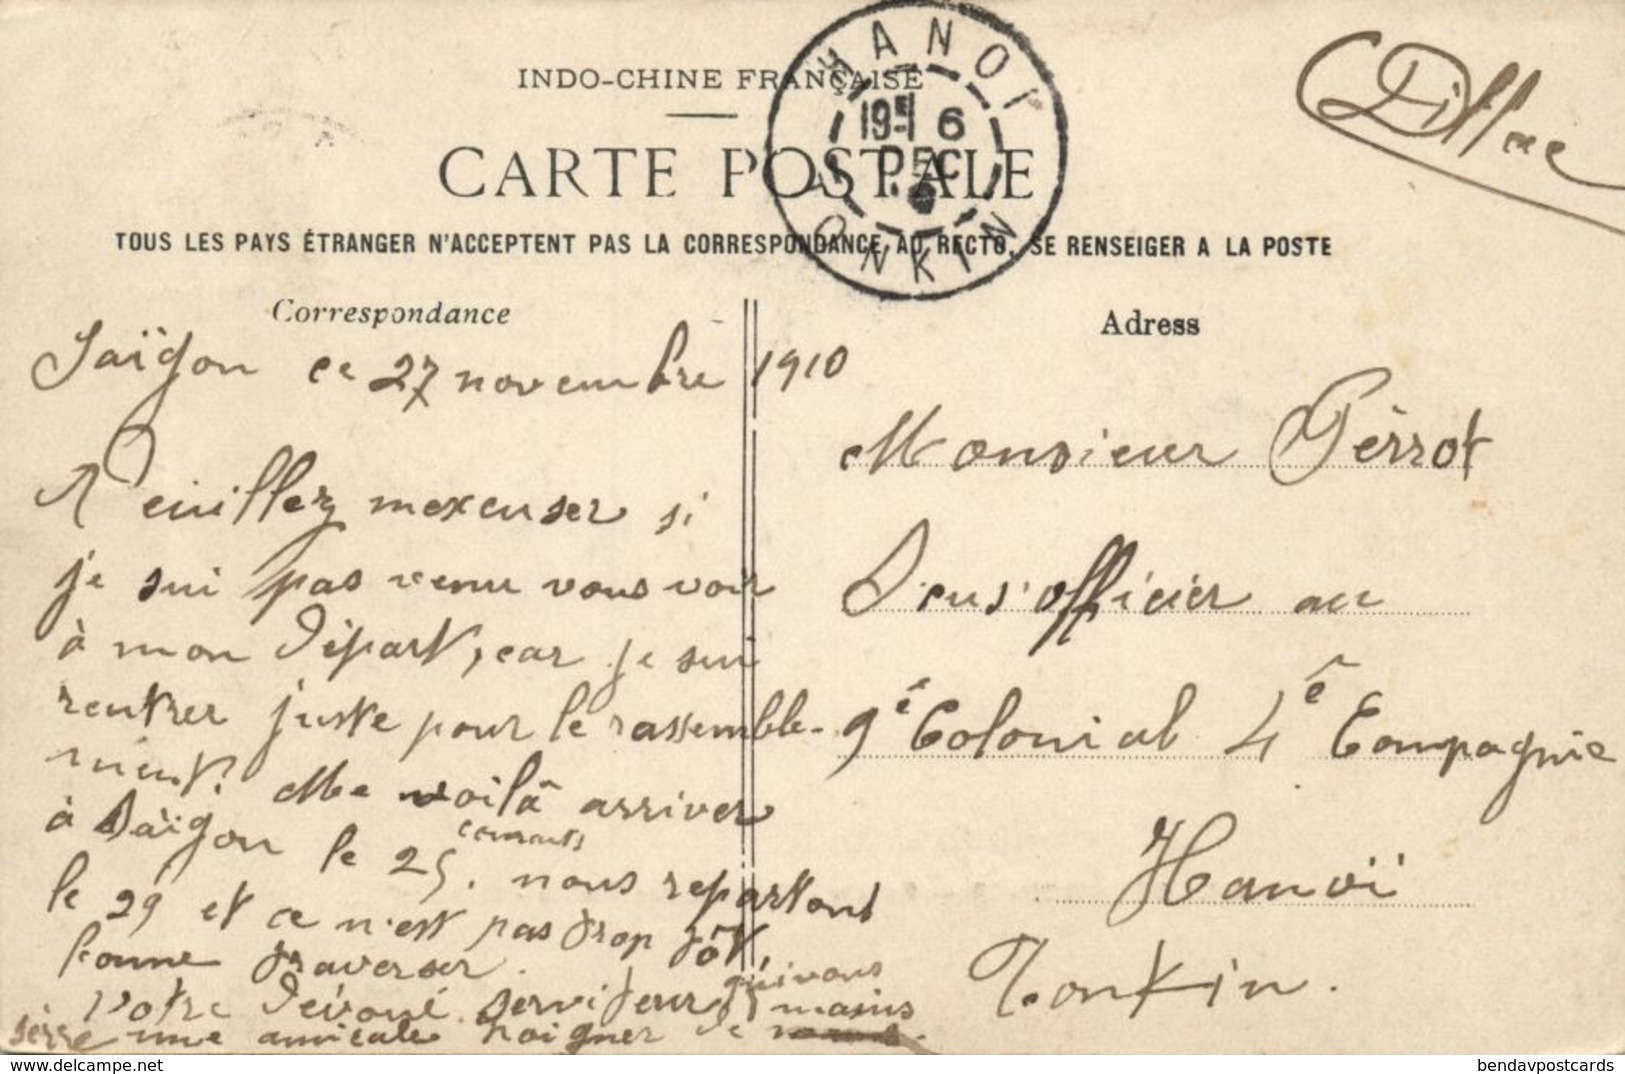 INDO-CHINE FRANÇAISE
CARTE POSTALE
HANOI
19E 6
DEC
TONKIN
TOUS LES PAYS ÉTRANGER N'ACCEPTENT PAS LA CORRESPONDANCE AU RECTO, SE RENSEIGER A LA POSTE
Correspondance
Saïgon ce 27 novembre 1910
Veuillez mexcuser si
je sui pas venu vous voir
à mon départ, car je sui
rentrer juste pour le rassemble-
ment. Me voilà arriver
à Saïgon le 25 courants. nous repartont
le 29 et ce n'est pas trop tôt,
bonne traverser.
Votre dévoué serviteur qui vous
sèrre une amicale poigner de mains
Adress
Monsieur Pèrrot
Sous'officier au
9e Colonial 4e Compagnie
Hanoï
Tonkin.
bendavpostcards
delcampe.net